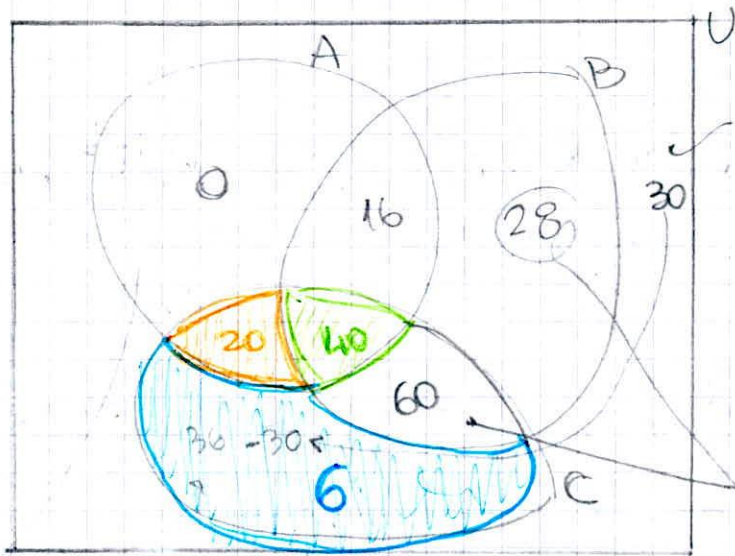 U
A
B
0
16
28
30
20
40
60
36 - 30
6
C